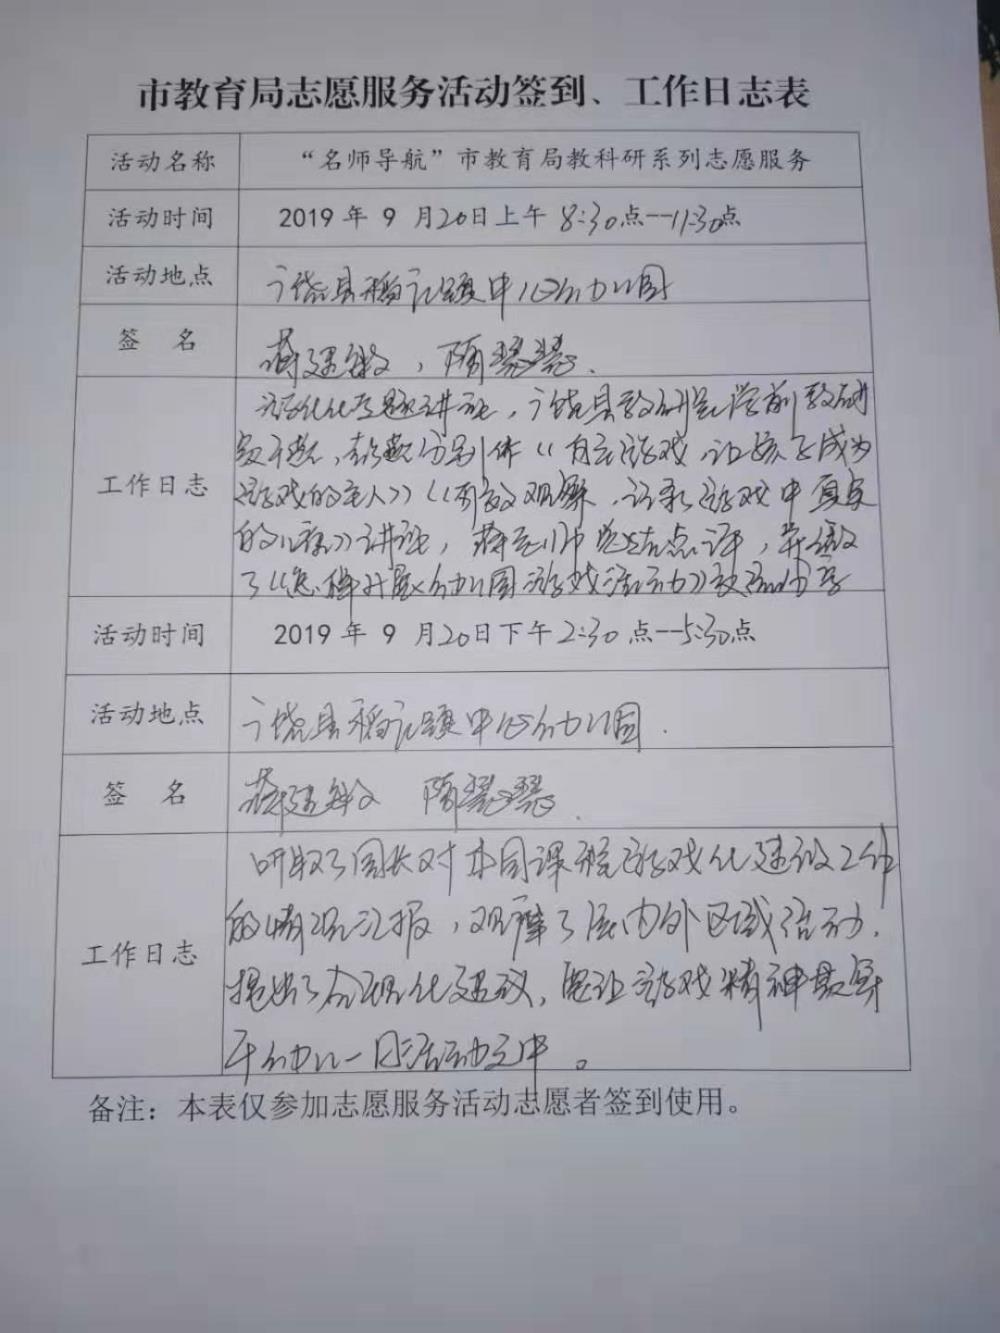 市教育局志愿服务活动签到、工作日志表
活动名称 “名师导航”市教育局教科研系列志愿服务
活动时间 2019 年 9 月20日上午 8:30点--11:30点
活动地点 广饶县稻庄镇中心幼儿园
签 名 蒋建敏，隋慧慧.
游戏化专题讲座，广饶县教研室学前教研
分别作《自主游戏，让孩子成为
工作日志 游戏的主人》《有效观察，记录游戏中真实
的》讲座，蒋老师总结点评，并做
了《怎样开展幼儿园游戏活动》
活动时间 2019 年 9 月20日下午2:30 点--5:30点
活动地点 广饶县稻庄镇中心幼儿园.
签 名 蒋建敏 隋慧慧.
听取了园长对本园课程游戏化建设工作
的情况汇报，观摩了室内外区域活动，
工作日志 提出了合理化建议，要让游戏精神
于幼儿一日活动之中。
备注：本表仅参加志愿服务活动志愿者签到使用。